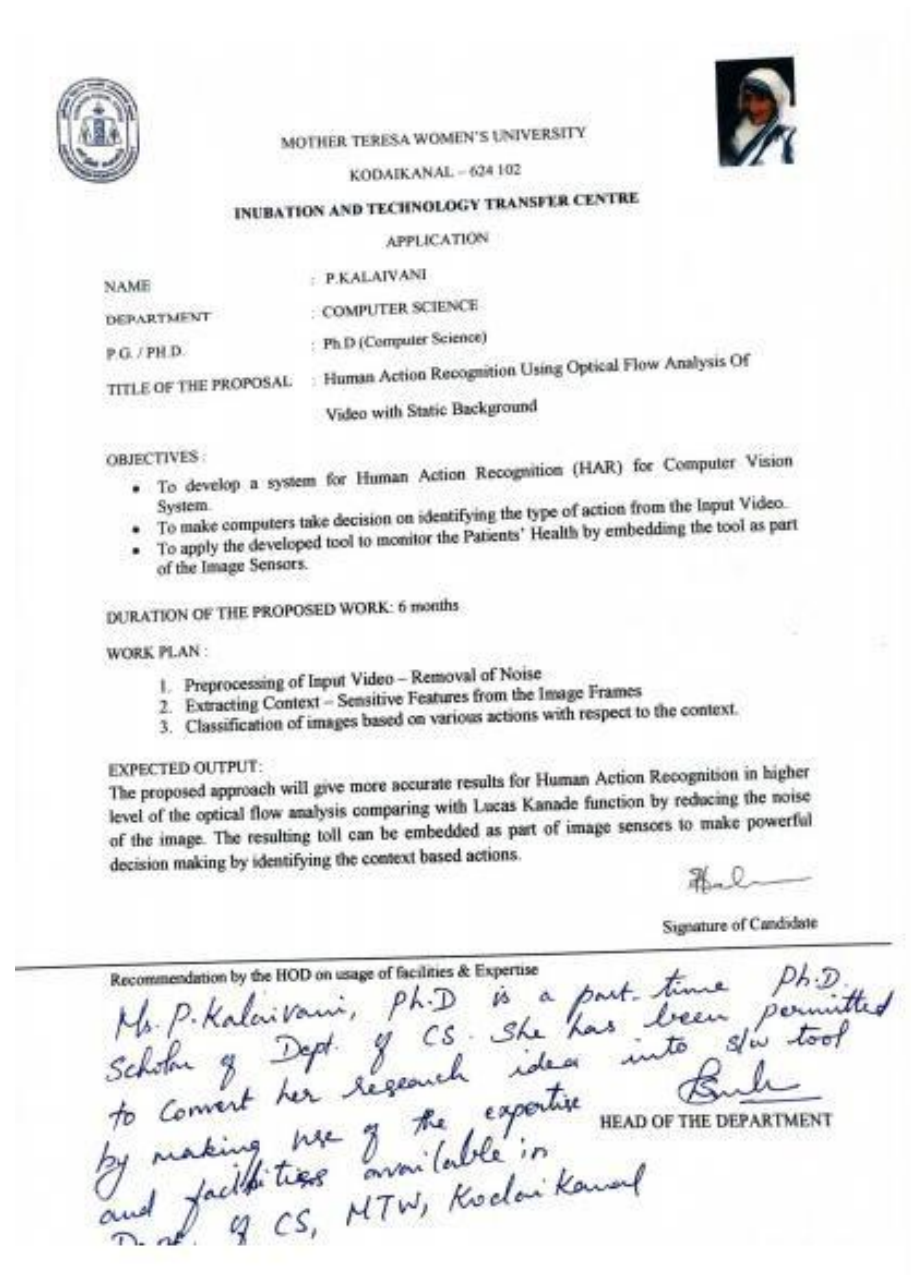 MOTHER TERESA WOMEN'S UNIVERSITY
KODAIKANAL – 624 102
INUBATION AND TECHNOLOGY TRANSFER CENTRE
APPLICATION
NAME : P.KALAIVANI
DEPARTMENT : COMPUTER SCIENCE
P.G. / PH.D. : Ph.D (Computer Science)
TITLE OF THE PROPOSAL : Human Action Recognition Using Optical Flow Analysis Of
Video with Static Background
OBJECTIVES :
• To develop a system for Human Action Recognition (HAR) for Computer Vision
System.
• To make computers take decision on identifying the type of action from the Input Video.
• To apply the developed tool to monitor the Patients' Health by embedding the tool as part
of the Image Sensors.
DURATION OF THE PROPOSED WORK: 6 months
WORK PLAN :
1. Preprocessing of Input Video – Removal of Noise
2. Extracting Context – Sensitive Features from the Image Frames
3. Classification of images based on various actions with respect to the context.
EXPECTED OUTPUT:
The proposed approach will give more accurate results for Human Action Recognition in higher
level of the optical flow analysis comparing with Lucas Kanade function by reducing the noise
of the image. The resulting toll can be embedded as part of image sensors to make powerful
decision making by identifying the context based actions.
Signature of Candidate
Recommendation by the HOD on usage of facilities & Expertise
Ms. P. Kalaivani, Ph.D is a part-time Ph.D.
Scholar of Dept. of CS. She has been permitted
to convert her research idea into s/w tool
by making use of the expertise
HEAD OF THE DEPARTMENT
and facilities available in
Dept. of CS, MTW, Kodaikanal